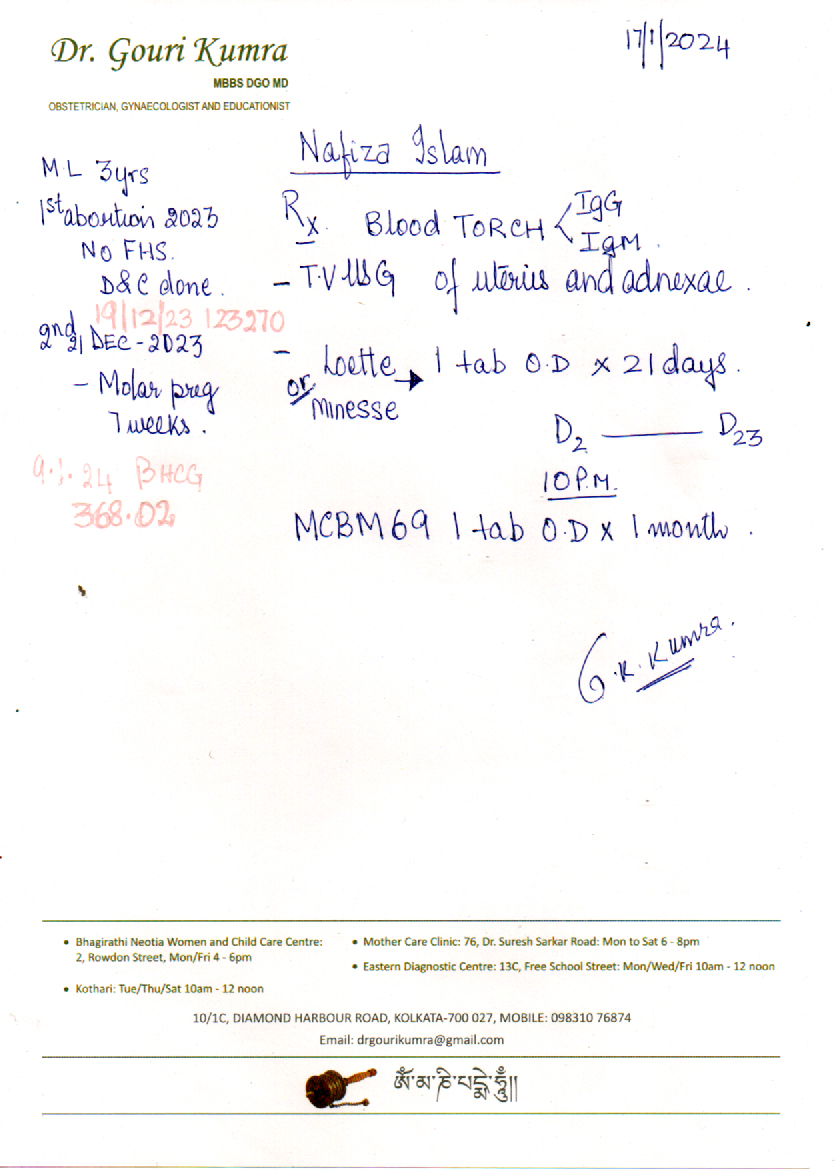 Dr. Gouri Kumra
MBBS DGO MD
OBSTETRICIAN, GYNAECOLOGIST AND EDUCATIONIST
17/1/2024
Nafiza Islam
ML 3yrs
1st abortion 2023
NO FHS.
D&C done.
19/12/23 123270
2nd 21 DEC-2023
- Molar preg
7 weeks.
9.1.24 BHCG
368.02
Rx Blood TORCH < IgG
IgM.
- T.V USG of uterus and adnexae.
- Loette → 1 tab O.D x 21 days.
or
Minesse
D2 —— D23
10 P.M.
MCBM69 1 tab O.D x 1 month.
G.K. Kumra.
• Bhagirathi Neotia Women and Child Care Centre:
2, Rowdon Street, Mon/Fri 4 - 6pm
• Kothari: Tue/Thu/Sat 10am - 12 noon
• Mother Care Clinic: 76, Dr. Suresh Sarkar Road: Mon to Sat 6 - 8pm
• Eastern Diagnostic Centre: 13C, Free School Street: Mon/Wed/Fri 10am - 12 noon
10/1C, DIAMOND HARBOUR ROAD, KOLKATA-700 027, MOBILE: 098310 76874
Email: drgourikumra@gmail.com
ༀ་མ་ཎི་པདྨེ་ཧཱུྃ༎